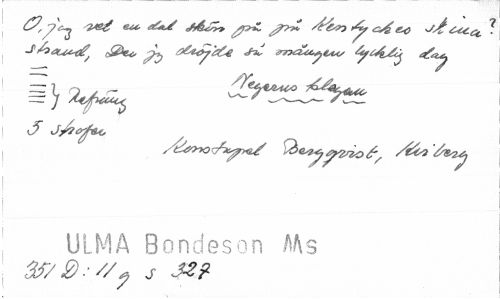 O, jag vet en dal skön på på Kentyckeo skina?
strand, Der jg dröjde så mången lycklig dag
} Refräng
Negerns klagan
5 strofer
Konstapel Bergqvist, Kviberg
ULMA Bondeson Ms
351 D: 11 g s 327